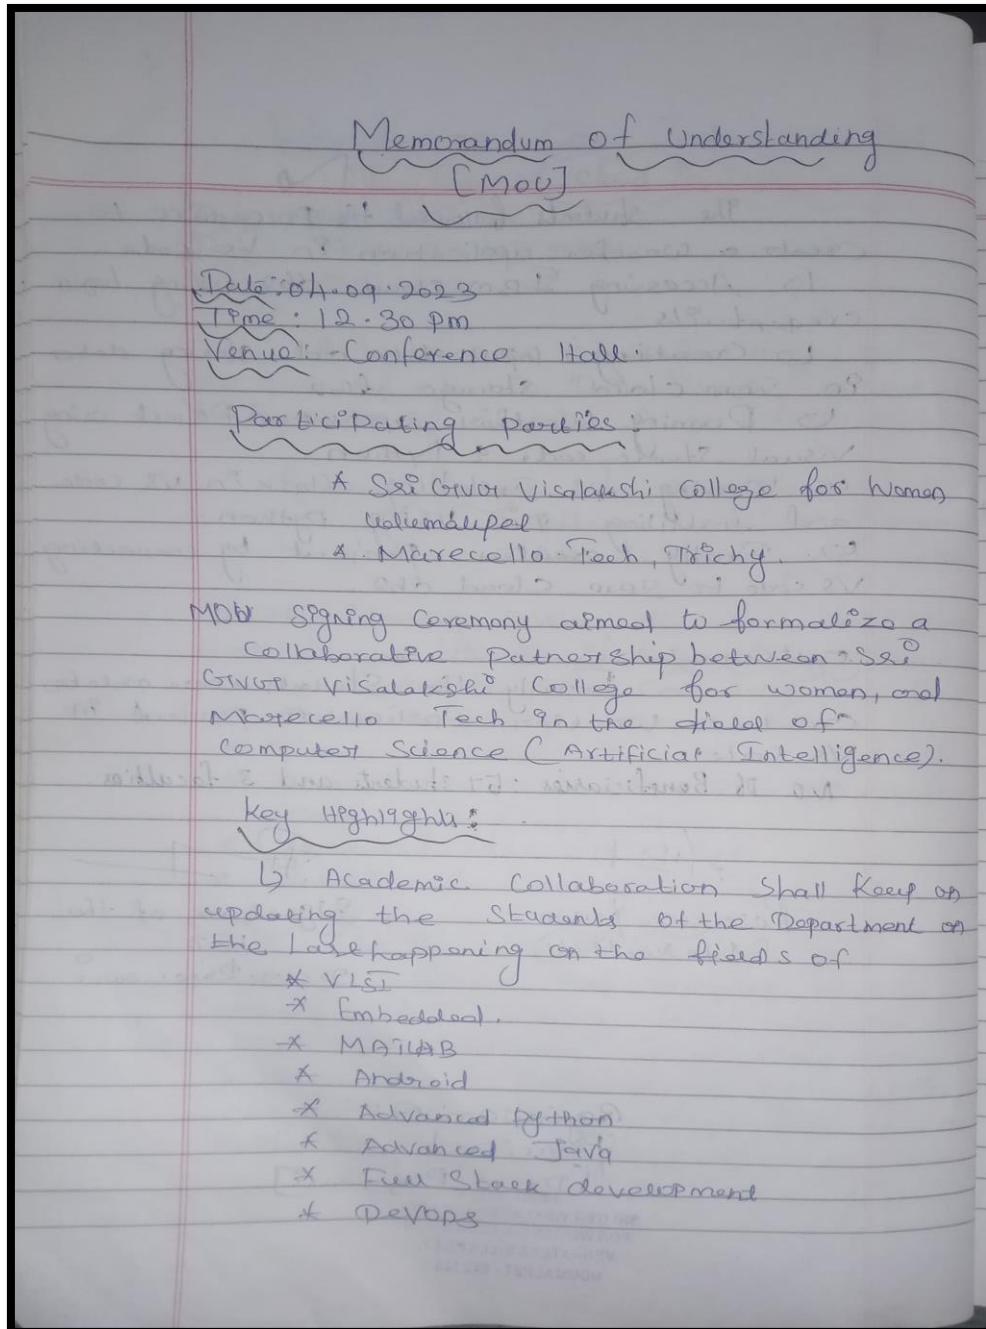 Memorandum of Understanding
[MOU]
Date: 04.09.2023
Time: 12.30 pm
Venue: - Conference Hall.
Participating parties:
* Sri GVG Visalakshi College for Women
* Marecello Tech, Trichy.
MOU signing Ceremony aimed to formalize a
Collaborative Patnership between Sri
GVG Visalakshi College for women, and
Marecello Tech in the field of
Computer Science (Artificial Intelligence).
Key Highlights:
↳ Academic Collaboration Shall Keep on
updating the Students of the Department on
the happening on the fields of
* VLSI
* Embedded.
* MATLAB
* Android
* Advanced Python
* Advanced Java
* Full Stack development
* DevOps